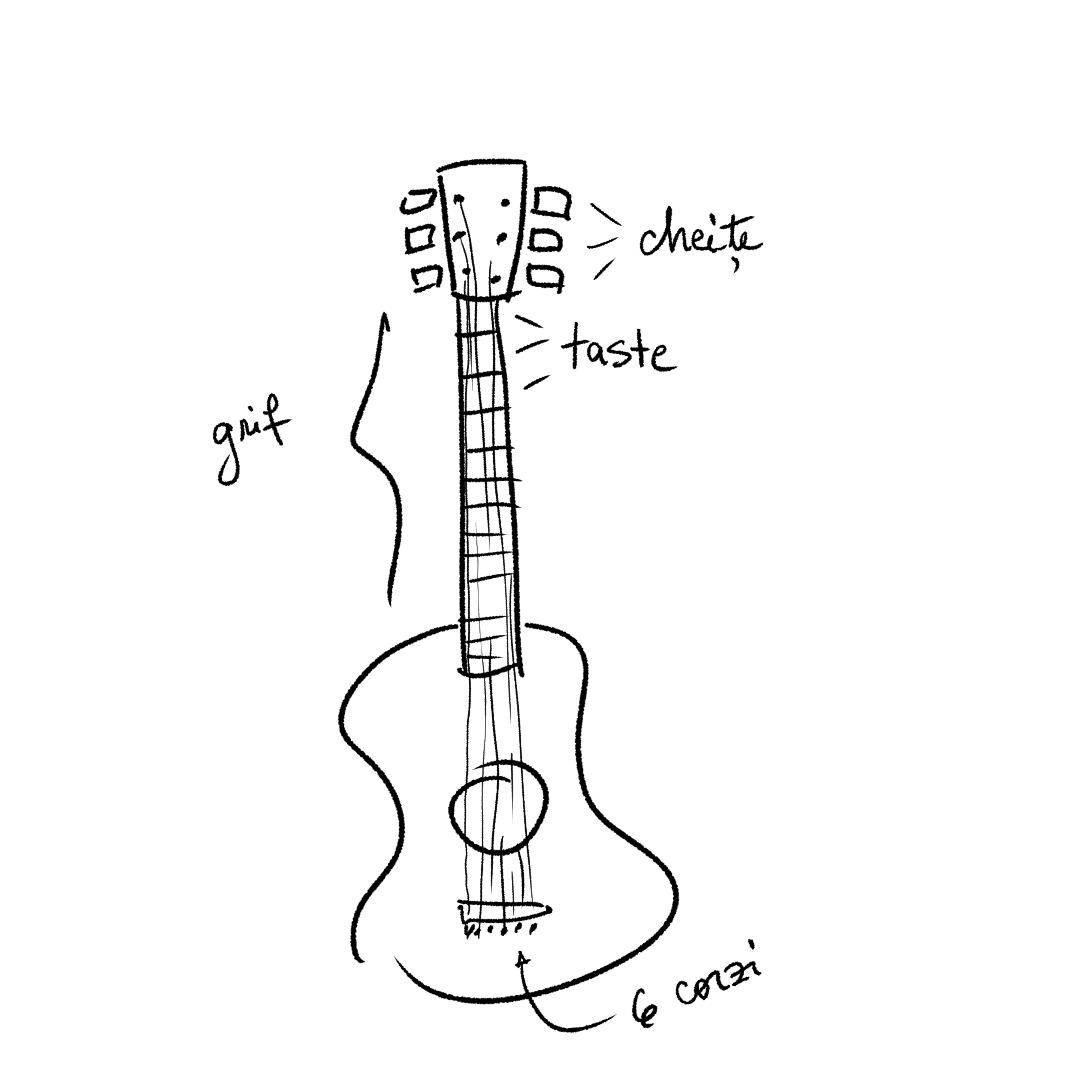 cheițe
taste
grif
6 corzi